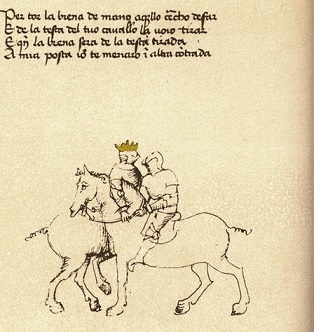 Per tor la brena de mano aq̄llo cħ cho desfar
E de la testa del tuo cavallo la voio tirar
E qñ la brena sera de la testa tirada
A mia posta io te menaro ī altra cōtrada